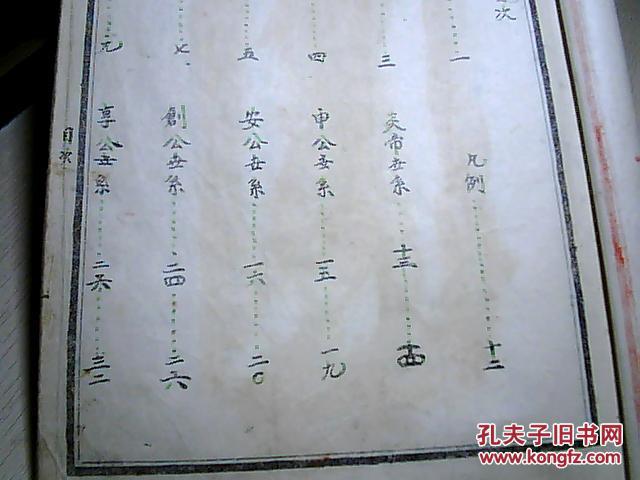 次
一 凡例 十二
三 炎帝世系 十三
四 申公世系 一五 一九
五 安公世系 一六 二〇
七 創公世系 二四 二六
九 享公世系 三二
目次
孔夫子旧书网
www.kongfz.com